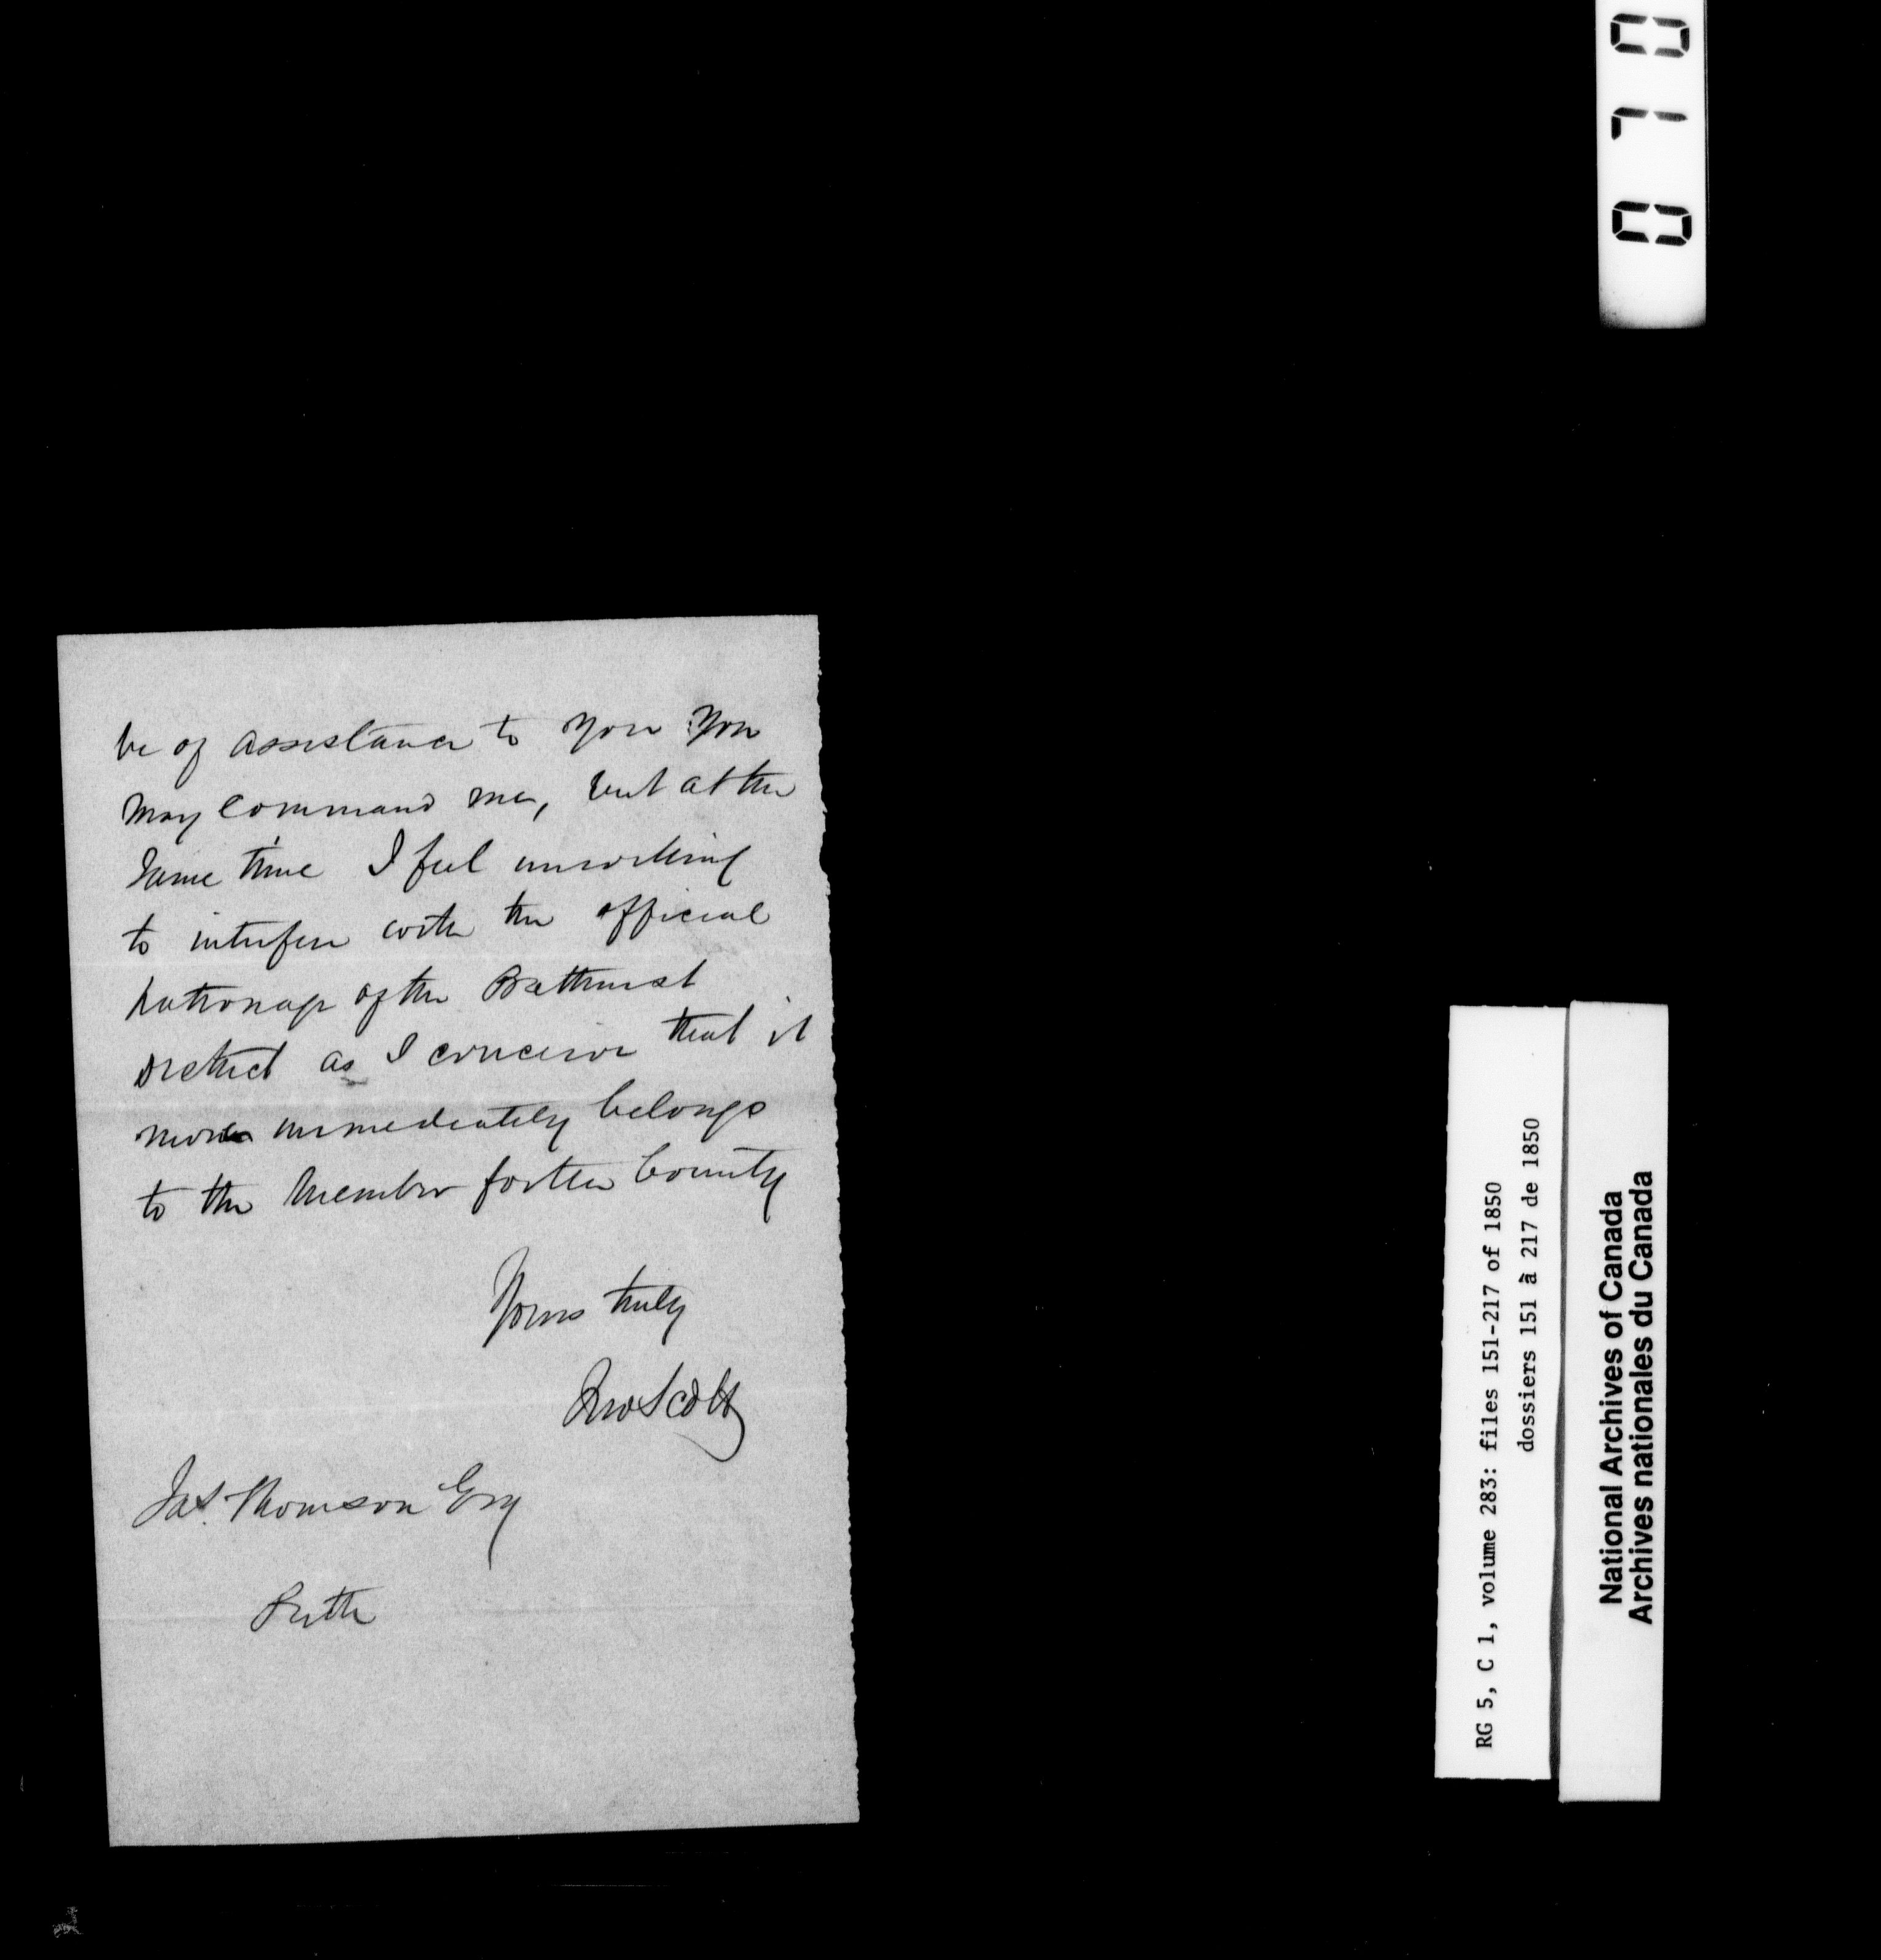 be of assistance to you you
may command me, but at the
same time I feel unwilling
to interfere with the official
patronage of the Bathurst
District as I conceive that it
more immediately belongs
to the Member for the County
Yours truly
Jno Scott
Jas. Thomson Esq
Perth
070
RG 5, C 1, volume 283: files 151-217 of 1850
dossiers 151 à 217 de 1850
National Archives of Canada
Archives nationales du Canada